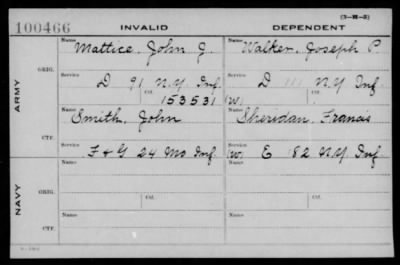 (3-M-5)
100466 INVALID DEPENDENT
Name Mattice, John J. Name Walker, Joseph P
ORIG.
Service D 91 N.Y. Inf. Service D 111 N.Y. Inf
Ctf. 153531 (W) Ctf.
ARMY
Name Smith, John Name Sheridan, Francis
CTF.
Service F & G 24 Mo Inf. Service (W) E 182 N.Y. Inf.
Name Name
ORIG.
Service Ctf. Service Ctf.
NAVY
Name Name
CTF.
Service Service